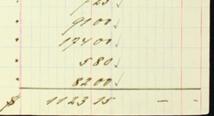 725 ✓
" 9100 ✓
" 17400 ✓
" 580 ✓
" 8200 ✓
$ 112315 — —